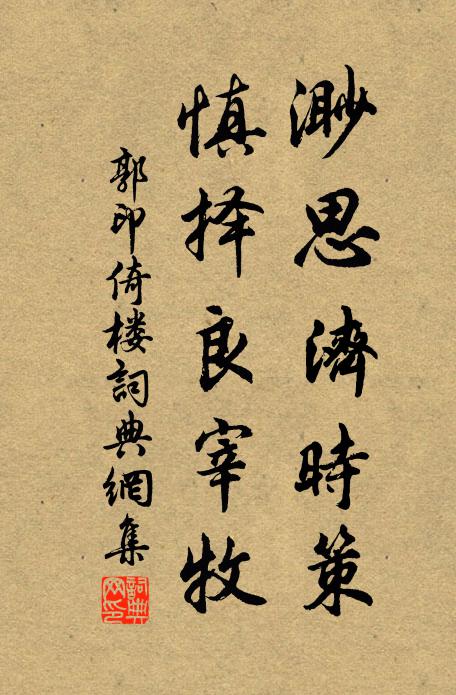 渺思濟時策
慎择良宰牧
郭印倚楼詞典網集
詞典网印